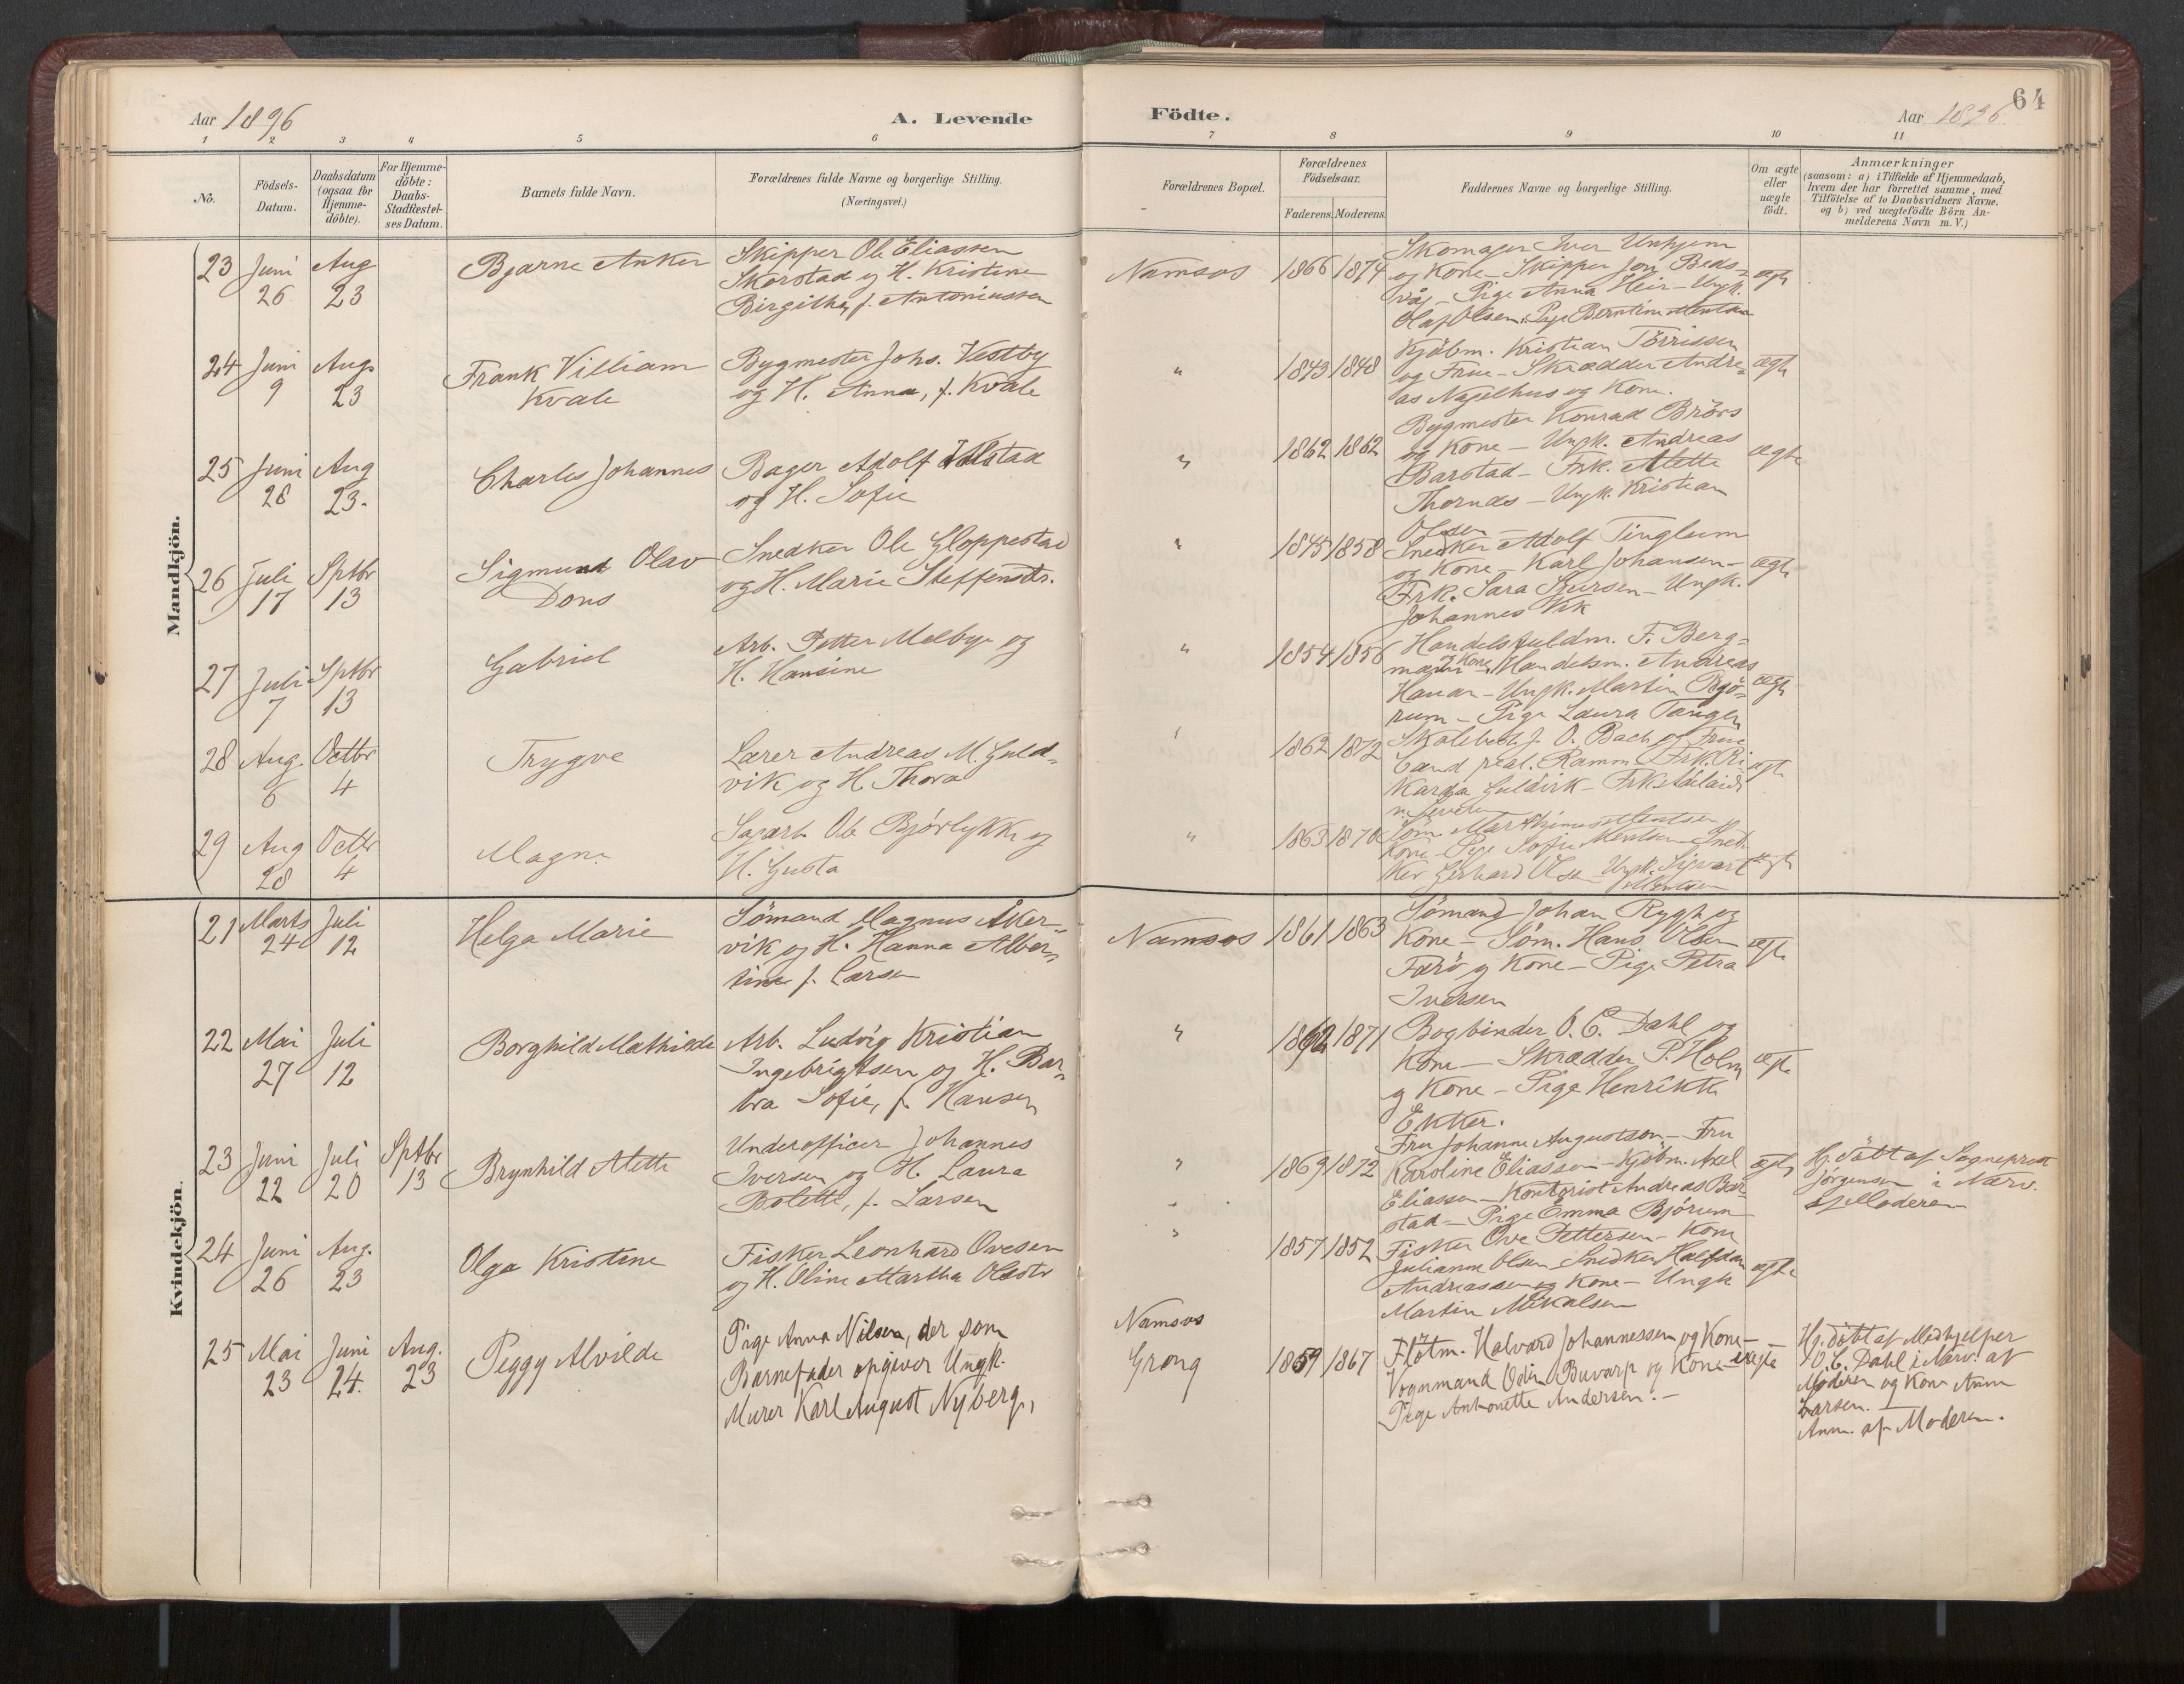 64
Aar 1896
A. Levende
Födte.
Aar 1896
1 2 3 4 5 6 7 8 9 10 11
No.
Födsels-
Datum.
Daabsdatum
(ogsaa for
Hjemme-
döbte).
For Hjemme-
döbte:
Daabs-
Stadfæstel-
ses Datum.
Barnets fulde Navn.
Forældrenes fulde Navne og borgerlige Stilling.
(Næringsvei.)
Forældrenes Bopæl.
Forældrenes
Födselsaar.
Faderens. Moderens.
Faddernes Navne og borgerlige Stilling.
Om ægte
eller
uægte
födt.
Anmærkninger
(saasom: a) i Tilfælde af Hjemmedaab,
hvem der har forrettet samme, med
Tilföielse af to Daabsvidners Navne.
og b) ved uægtefödte Börn An-
melderens Navn m. V.)
Mandkjön.
23 Juni 26 Aug 23
Bjarne Anker
Skipper Ole Eliassen
Skorstad og H. Kristine
Birgitha, f. Antoniussen
Namsos 1866 1874
Skomager Iver Unhjem
og Kone - Skipper Jon Beds-
våg - Pige Anna Heir - Ungk.
Olaf Olsen, Pige Berntine
ægte
24 Juni 9 Aug 23
Frank Villiam
Kvale
Bygmester Johs. Vestby
og H. Anna, f. Kvale
" 1843 1848
Kjöbm. Kristian Törrissen
og Frue - Skrædder Andre-
as Nagelhus og Kone.
ægte
25 Juni 28 Aug 23.
Charles Johannes
Bager Adolf
og H. Sofie
" 1862 1862
Bygmester Konrad Brörs
og Kone - Ungk. Andreas
Barstad - Frk. Alette
Thornæs - Ungk. Kristian
Olsen
ægte
26 Juli 17 Sptbr 13
Sigmund Olav
Dons
Snedker Ole Gloppestad
og H. Marie Steffensdtr.
" 1845 1858
Snedker Adolf Tinglum
og Kone - Karl Johansen -
Frk. Sara - Ungk.
Johannes Vik
ægte
27 Juli 7 Sptbr 13
Gabriel
Arb. Petter Melbye og
H. Hansine
" 1854 1856
Handelsfuldm. F. Berg-
mann og Kone - Handelsm. Andreas
Hanar - Ungk. Martin Bjö-
rum - Pige Laura Tangen
ægte
28 Aug. 6 Octbr 4
Trygve
Lærer Andreas M. Guld-
vik og H. Thora
" 1862 1872
Skolebest. J. O. Bach og Frue
Cand real. Ramm Frk. Ri-
karda Guldvik - Frk. Adelaide
ægte
29 Aug 28 Octbr 4
Magne
Sagarb. Ole Bjørlykke og
H. Gusta
" 1863 1870
Söm. Marthinus Mentsen
Kone - Pige Sofie Mentsen Sned-
ker Gerhard Olsen Ungk. Sigvart
Mentsen
ægte
Kvindekjön.
21 Marts 24 Juli 12
Helga Marie
Sömand Magnus Aker-
vik og H. Hanna Alber-
tine f. Larsen
Namsos 1861 1863
Sömand Johan Rygh og
Kone - Söm. Hans Olsen
Farö og Kone - Pige Petra
Iversen
ægte
22 Mai 27 Juli 12
Borghild Mathilde
Arb. Ludvig Kristian
Ingebrigtsen og H. Bar-
bra Sofie, f. Hansen
" 1862 1871
Bogbinder O. C. Dahl og
Kone - Skrædder P. Holm
og Kone - Pige Henrikke
Ekker.
ægte
23 Juni 22 Juli 20 Sptbr 13
Brynhild Alette
Underofficer Johannes
Iversen og H. Laura
Bolette, f. Larsen
" 1869 1872
Fru Johanne Augustson - Fru
Karoline Eliassen - Kjöbm. Axel
Eliassen - Kontorist Andreas Bar-
stad - Pige Emma Bjørum
ægte
Hj. döbt af Sogneprest
Jörgensen i Nærv.
af Moderen
24 Juni 26 Aug. 23
Olga Kristine
Fisker Leonhard Ovesen
og H. Oline Martha Olsdtr
" 1857 1852
Fisker Ove Pettersen - Kone
Julianne Olsen Snedker Halfdan
Andreassen og Kone - Ungk
Martin Mikalsen
ægte
25 Mai 23 Juni 24. Aug. 23
Peggy Alvilde
Pige Anna Nilsen, der som
Barnefader opgiver Ungk.
Murer Karl August Nyberg,
Namsos
Grong
1859 1867
Flötm. Halvard Johannessen og Kone -
Vognmand Odin Buvarp og Kone -
Pige Antonette Andersen. -
uægte
Hj. döbt af Medhjelper
O. C. Dahl i Nærv. af
Moderen og Kone Anne
Larsen.
Anm. af Moderen.